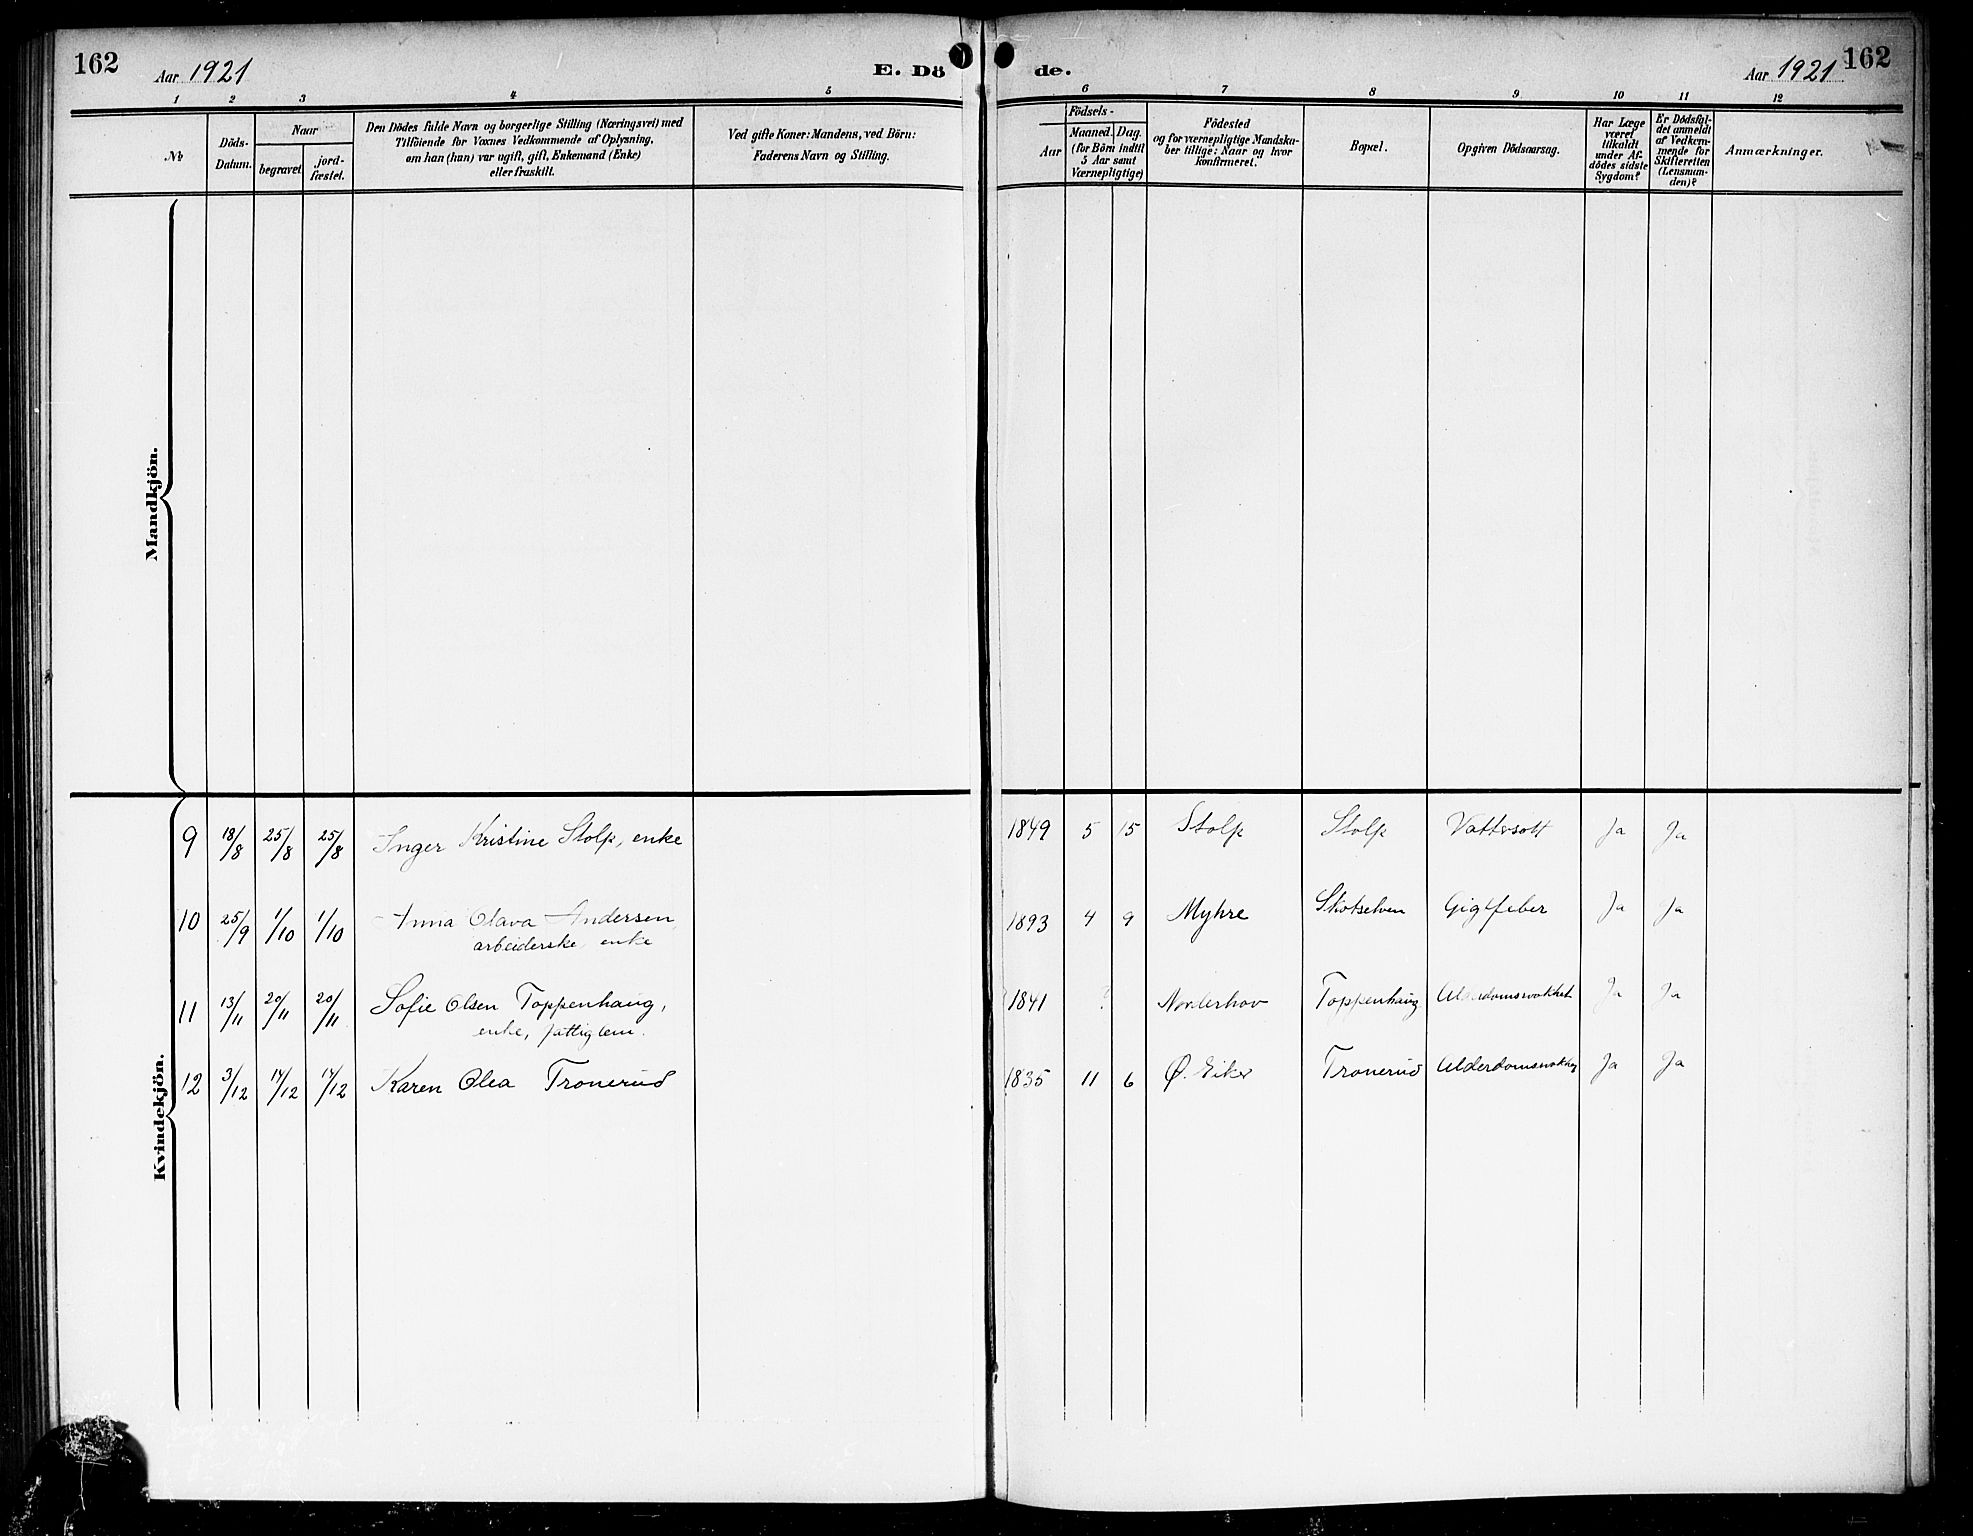 162
Aar 1921
E. Dö
de.
Aar 1921
162
1 2 3 4 5
6 7 8 9 10 11 12
No
Döds-
Datum.
Naar
begravet
jord-
fæstet.
Den Dödes fulde Navn og borgerlige Stilling (Næringsvei) med
Tilföiende for Voxnes Vedkommende af Oplysning,
om han (hun) var ugift, gift, Enkemand (Enke)
eller fraskilt.
Ved gifte Koner: Mandens, ved Börn:
Faderens Navn og Stilling.
Födsels-
Aar
Maaned. Dag.
(for Börn indtil
5 Aar samt
Værnepligtige)
Födested
og for værnepligtige Mandska-
ber tillige: Naar og hvor
konfirmeret.
Bopæl.
Opgiven Dödsaarsag.
Har Læge
været
tilkaldt
under Af-
dödes sidste
Sygdom?
Er Dödsfal-
det anmeldt
af Vedkom-
mende for
Skifteretten
(Lensman-
den)?
Anmærkninger.
Mandkjön.
Kvindekjön.
9 18/8 25/8 25/8 Inger Kristine Stolp, enke 1849 5 15 Stolp Stolp Vattersott Ja Ja
10 25/9 1/10 1/10 Anna Olava Andersen, 1893 4 9 Myhre Skotselven Gigtfeber Ja Ja
arbeiderske, enke
11 13/11 20/11 20/11 Sofie Olsen Toppenhaug, 1841 ? Norderhov Toppenhaug Alderdomssvakhet Ja Ja
enke, fattiglem.
12 3/12 14/12 14/12 Karen Olea Tronerud 1835 11 6 Ø. Eiker Tronerud Ja Ja